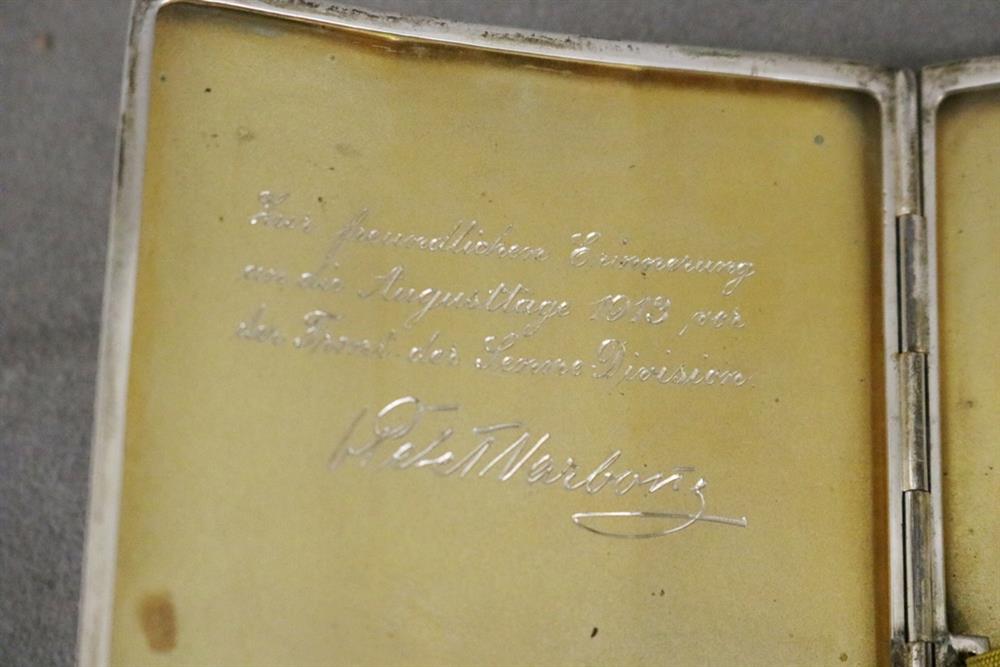 Zur freundlichen Erinnerung
an die Augusttage 1913 vor
der Front der Senne Division.
Peter Narbonz